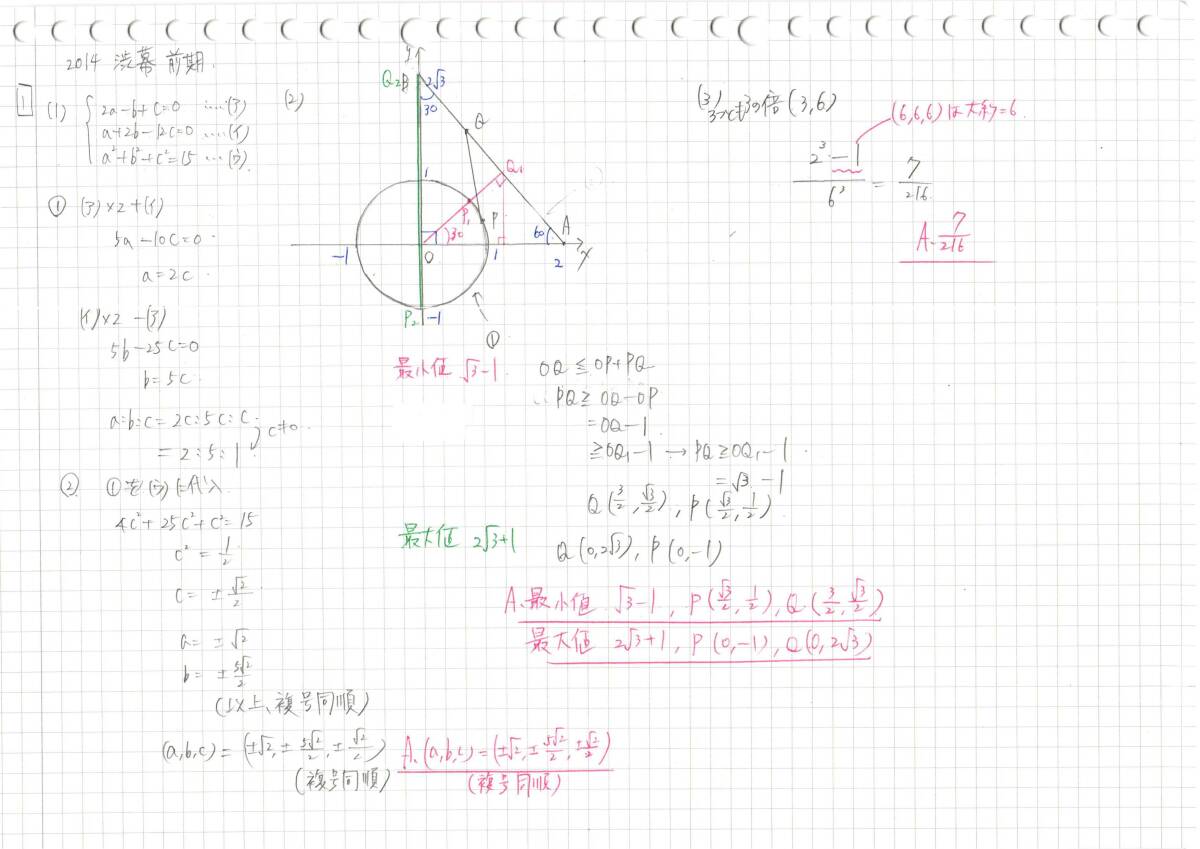 2014 渋幕 前期.
1
(1) { 2a-b+c=0 ....(ア)
a+2b-12c=0 ...(イ)
a²+b²+c²=15 ...(ウ)
① (ア)×2+(イ)
5a-10c=0.
a=2c.
(イ)×2-(ア)
5b-25c=0
b=5c.
a:b:c=2c:5c:c
=2:5:1
c≠0.
② ①を(ウ)に代入.
4c²+25c²+c²=15
c²=1/2
c=±√2/2
a=±√2
b=±5√2/2
(以上、複号同順)
(a,b,c)=(±√2,±5√2/2,±√2/2)
(複号同順)
A.(a,b,c)=(±√2,±5√2/2,±√2/2)
(複号同順)
(2)
y
Q₂B 2√3
30
Q
1
Q₁
P₁
P
30
60
A
-1
O
1
2
x
P₂ -1
①
最小値 √3-1.
OQ≦OP+PQ
∴PQ≧OQ-OP
=OQ-1
≧OQ₁-1→PQ≧OQ₁-1.
=√3-1
Q(3/2,√3/2), P(√3/2,1/2)
最大値 2√3+1
Q(0,2√3), P(0,-1)
A.最小値 √3-1, P(√3/2,1/2), Q(3/2,√3/2)
最大値 2√3+1, P(0,-1), Q(0,2√3)
(3)
3つとも3の倍(3,6)
(6,6,6)は大約=6.
2³-1/6³=7/216
A.7/216